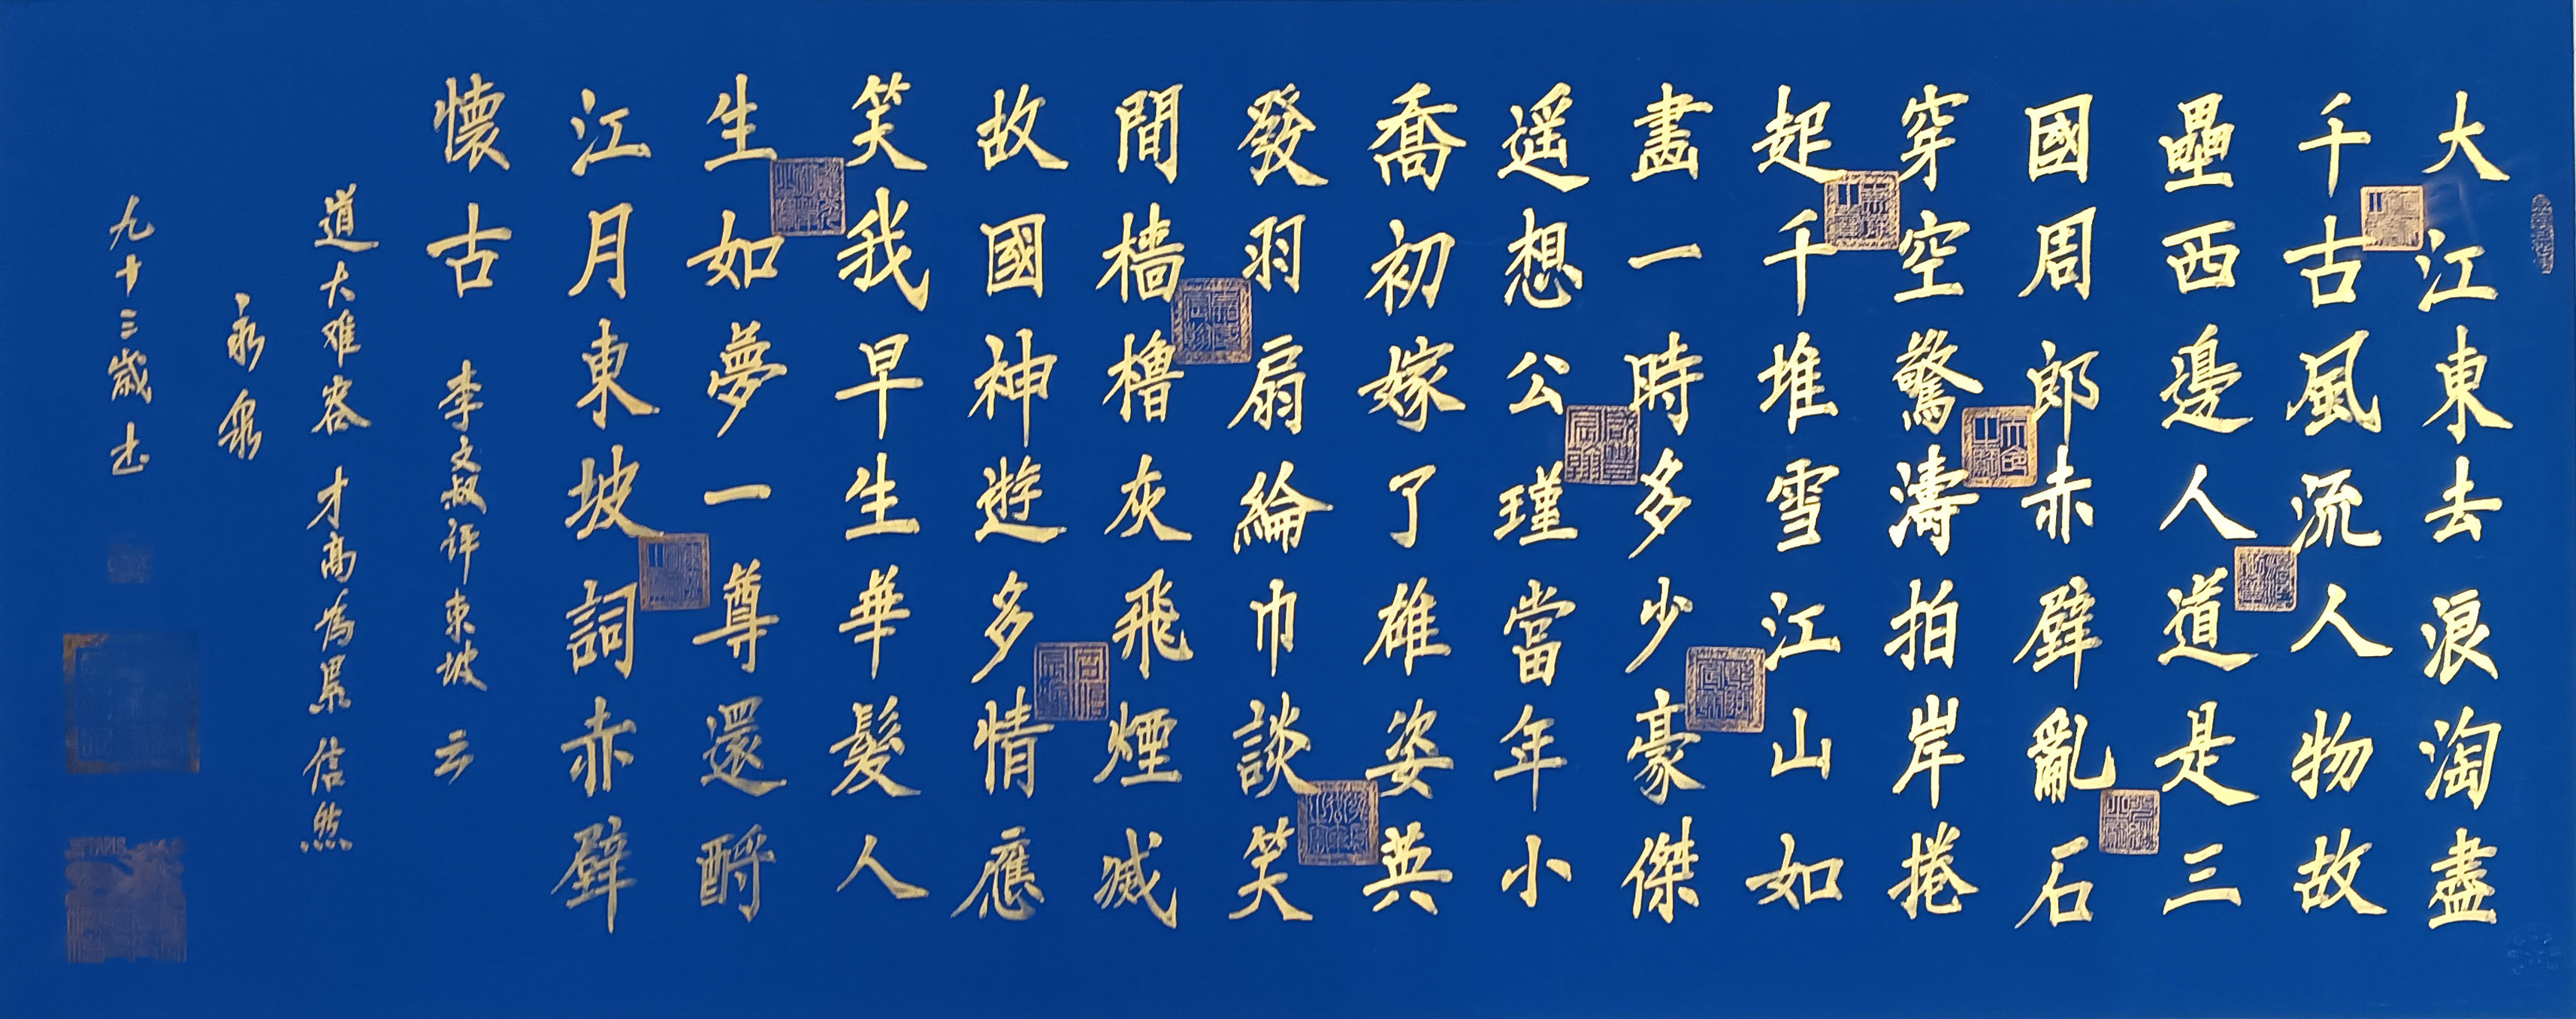 大江東去浪淘盡
千古風流人物故
壘西邊人道是三
國周郎赤壁亂石
穿空驚濤拍岸捲
起千堆雪江山如
畫一時多少豪傑
遥想公瑾當年小
喬初嫁了雄姿英
發羽扇綸巾談笑
間檣櫓灰飛煙滅
故國神遊多情應
笑我早生華髮人
生如夢一尊還酹
江月東坡詞赤壁
懷古 李文叔評東坡云
道大难容才高為累信然
永泉
九十三歲书